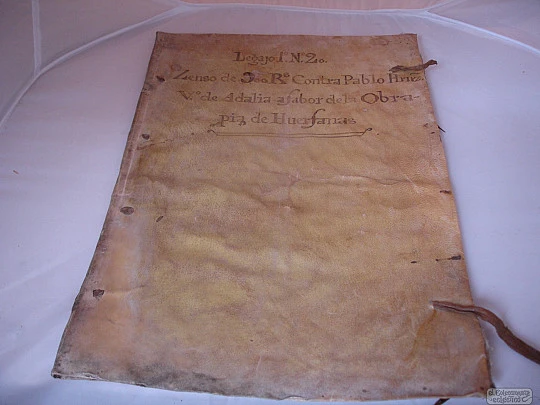 Legajo 1. Nº 20.
Zenso de 300 Rˢ Contra Pablo Hrrz
Vº de Adalia a fabor de la Obra-
pia de Huerfanas